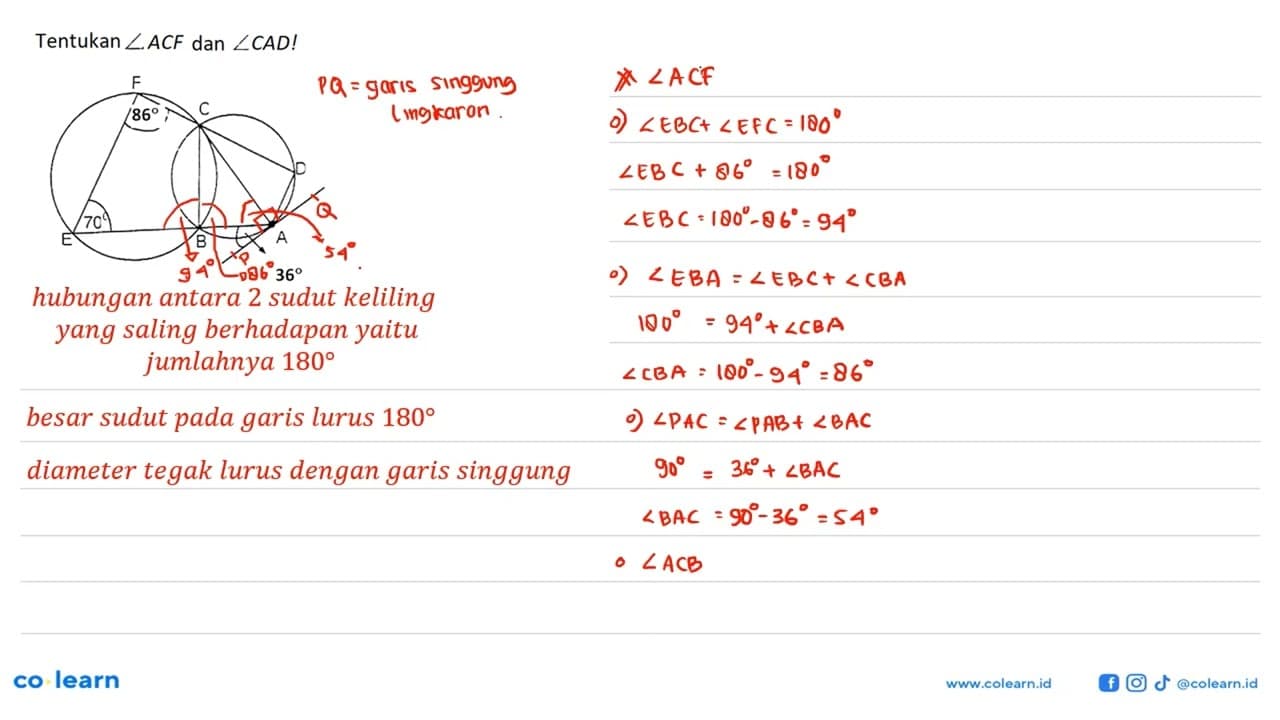 Tentukan ∠ACF dan ∠CAD!
F
86°
C
D
70°
E
B
A
Q
P
94°
86°
36°
54°
PQ = garis singgung
lingkaran.
hubungan antara 2 sudut keliling
yang saling berhadapan yaitu
jumlahnya 180°
besar sudut pada garis lurus 180°
diameter tegak lurus dengan garis singgung
* ∠ACF
o) ∠EBC + ∠EFC = 180°
∠EBC + 86° = 180°
∠EBC = 180° - 86° = 94°
o) ∠EBA = ∠EBC + ∠CBA
180° = 94° + ∠CBA
∠CBA = 180° - 94° = 86°
o) ∠PAC = ∠PAB + ∠BAC
90° = 36° + ∠BAC
∠BAC = 90° - 36° = 54°
o ∠ACB
co learn
www.colearn.id
@colearn.id